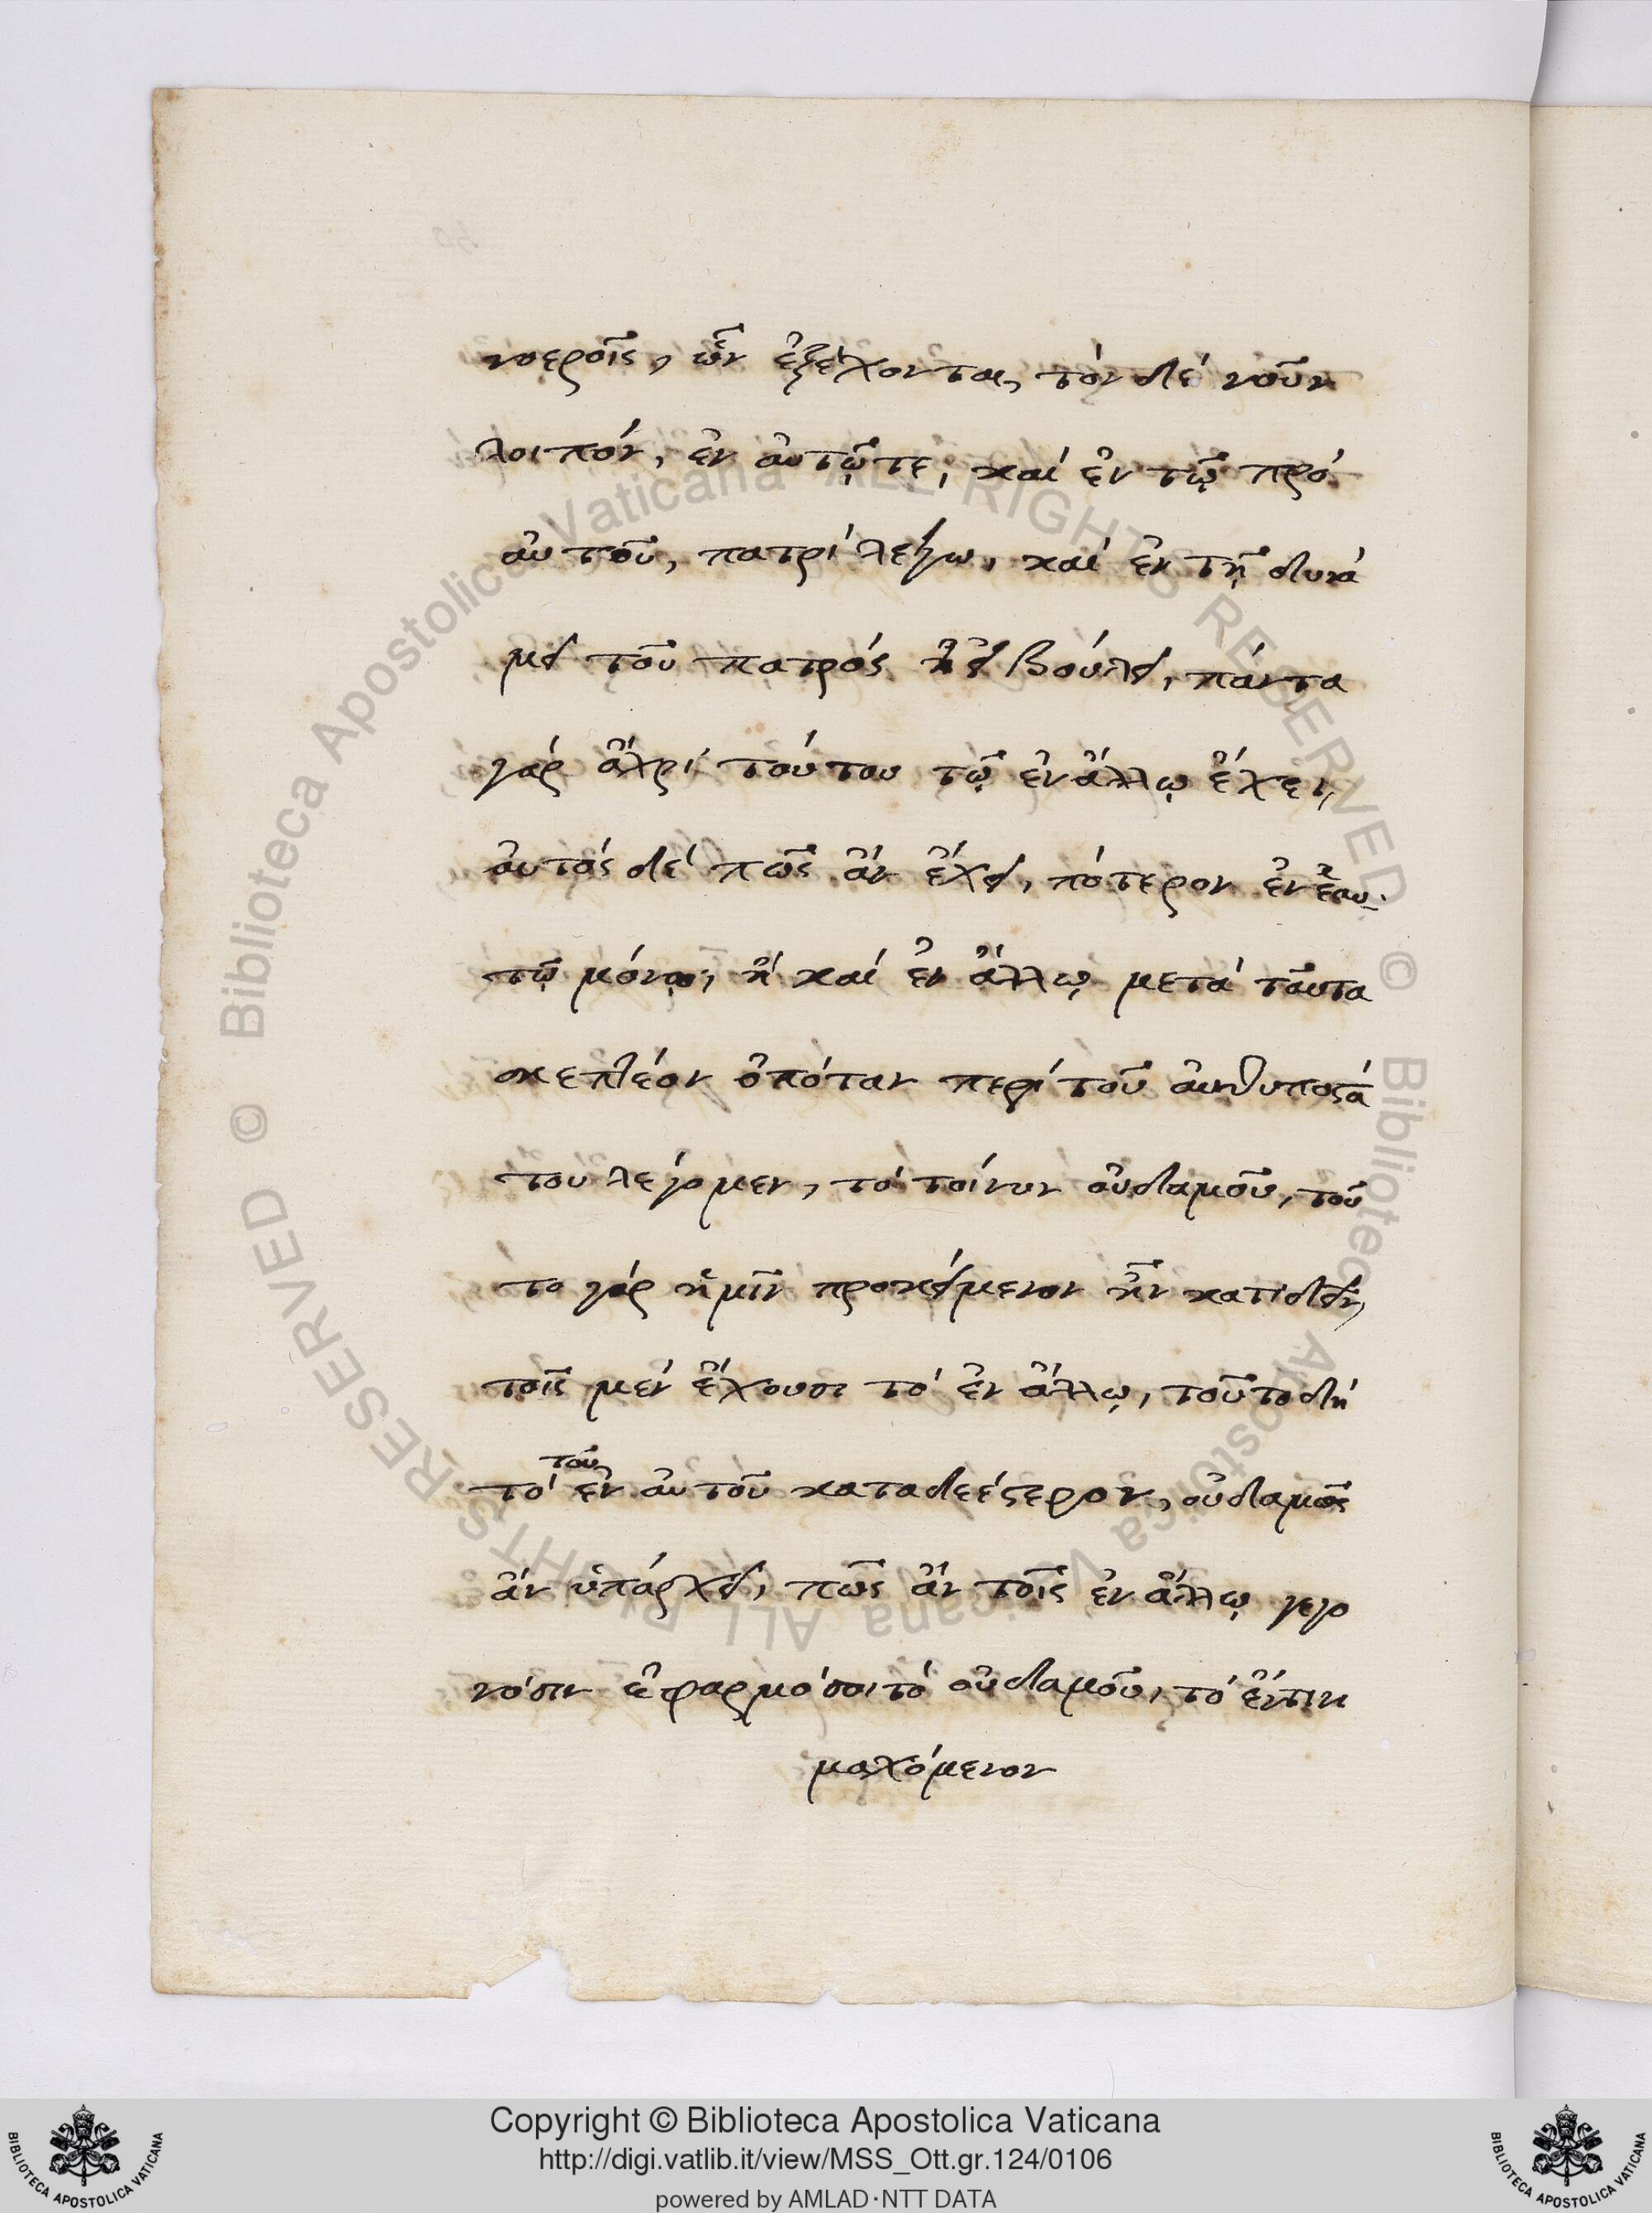 νοεροῖς, ὧν ἐξέχονται, τὸν δὲ νοῦν
λοιπὸν, ἐν αὑτῷ τε, καὶ ἐν τῷ πρὸ
αὐτοῦ, πατρὶ λέγω, καὶ ἐν τῇ δυνά
μει τοῦ πατρὸς ἢ εἰ βούλει, πάντα
γὰρ ἄχρι τούτου τῷ ἐν ἄλλῳ ἔχει,
αὐτὸς δὲ πῶς ἂν ἔχει, πότερον ἐν ἑαυ
τῷ μόνῳ, ἢ καὶ ἐν ἄλλῳ μετὰ ταῦτα
σκεπτέον ὁπόταν περὶ τοῦ αὐθυποστά
του λέγομεν, τὸ τοίνυν οὐδαμοῦ, τοῦ
το γὰρ ἡμῖν προκείμενον ἦν κατιδεῖν,
τοῖς μὲν ἔχουσι τὸ ἐν ἄλλῳ, τοῦτο δὴ
τὸ τοῦ ἐν αὐτοῦ καταδεέστερον, οὐδαμῶς
ἂν ὑπάρχει, πῶς ἂν τοῖς ἐν ἄλλῳ γεγο
νόσιν ἐφαρμόσοι τὸ οὐδαμοῦ, τὸ ἔντικ
μαχόμενον
Copyright © Biblioteca Apostolica Vaticana
http://digi.vatlib.it/view/MSS_Ott.gr.124/0106
powered by AMLAD·NTT DATA
© Biblioteca Apostolica Vaticana ALL RIGHTS RESERVED © Biblioteca Apostolica Vaticana ALL RIGHTS RESERVED
BIBLIOTECA APOSTOLICA VATICANA
BIBLIOTECA APOSTOLICA VATICANA